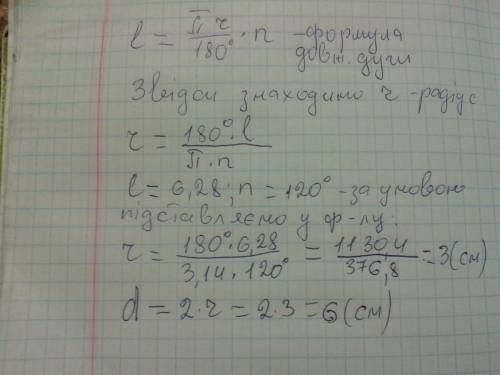 l = Пr/180° · n – формула
довж. дуги
Звідси знаходимо r – радіус
r = 180°·l/П·n
l = 6,28; n = 120° – за умовою
підставляємо у ф-лу:
r = 180°·6,28/3,14·120° = 1130,4/376,8 = 3 (см)
d = 2·r = 2·3 = 6 (см)